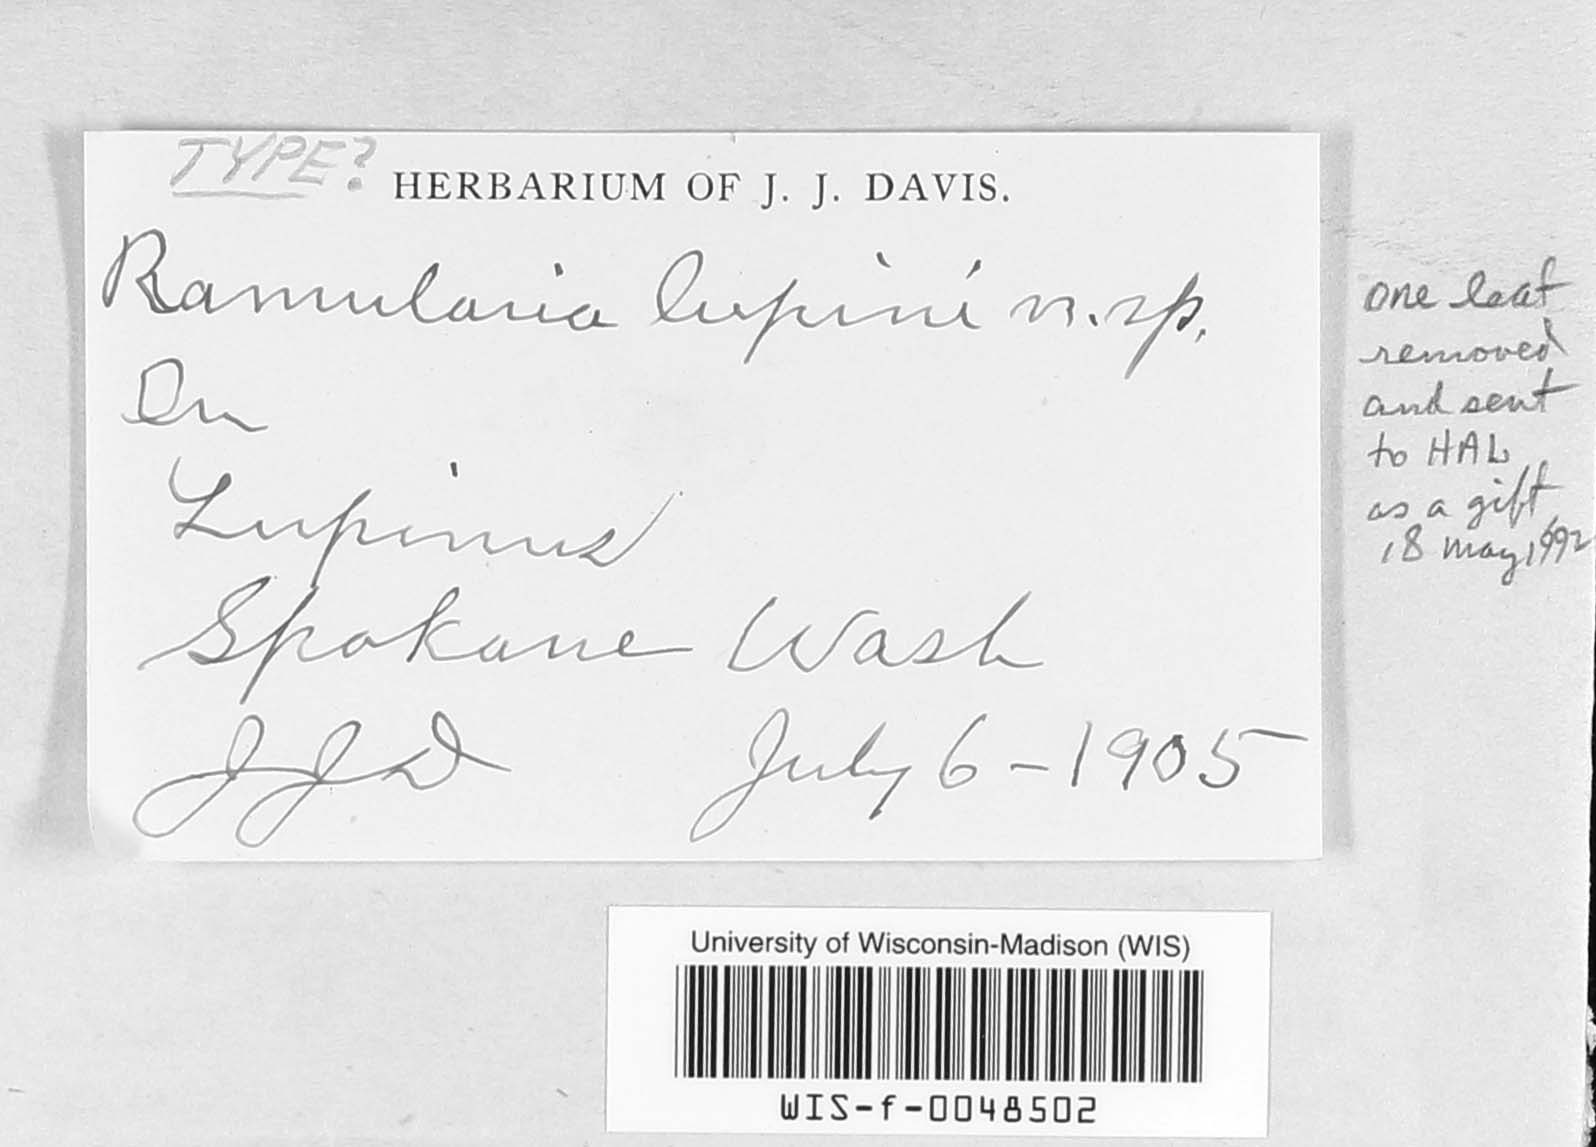 TYPE?
HERBARIUM OF J. J. DAVIS.
Ramularia lupini n. sp.
On
Lupinus
Spokane Wash
JJD July 6-1905
one leaf
removed
and sent
to HAL
as a gift
18 May 1992
University of Wisconsin-Madison (WIS)
WIS-f-0048502